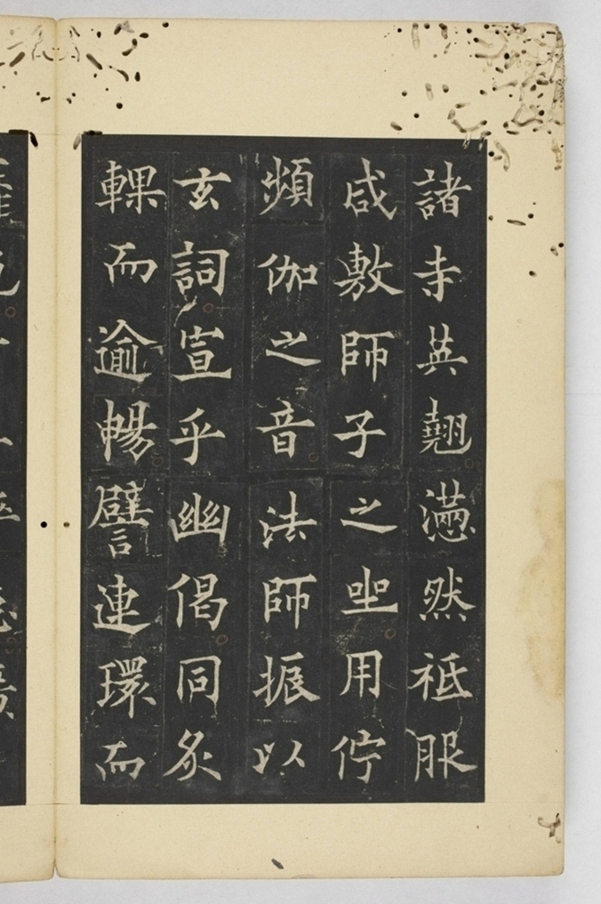 諸寺英翹懣然祗服
咸敷師子之坐用佇
頻伽之音法師振以
玄詞宣乎幽偈同炙
輠而逾暢譬連環而